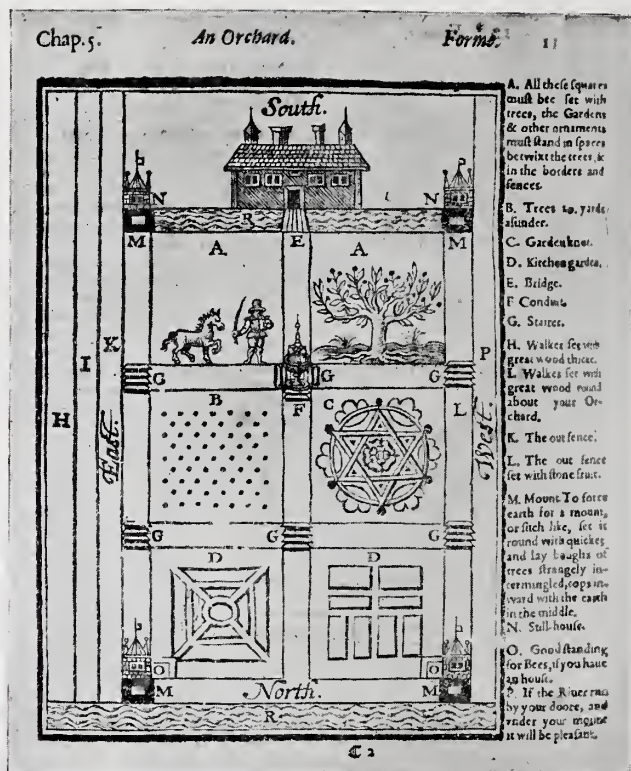 Chap. 5.
An Orchard.
Forms.
11
South.
N
N
R
M
E
M
A
A
K
P
I
G
G
G
B
F
C
L
H
East.
West.
G
G
G
D
D
O
O
M
M
North.
R
C 2
A. All theſe ſquares
muſt bee ſet with
trees, the Gardens
& other ornaments
muſt ſtand in ſpaces
betwixt the trees, &
in the borders and
fences.
B. Trees 20. yards
aſunder.
C. Garden knot.
D. Kitchen garden.
E. Bridge.
F Conduit.
G. Staires.
H. Walkes ſet with
great wood thicke.
I. Walkes ſet with
great wood round
about your Or-
chard.
K. The out fence.
L. The out fence
ſet with ſtone fruit.
M. Mount. To force
earth for a mount,
or ſuch like, ſet it
round with quicke,
and lay boughs of
trees ſtrangely in-
termingled, tops in-
ward with the earth
in the middle.
N. Still-houſe.
O. Good ſtanding
for Bees, if you haue
an houſe.
P. If the Riuer run
by your doore, and
vnder your mount
it will be pleaſant.